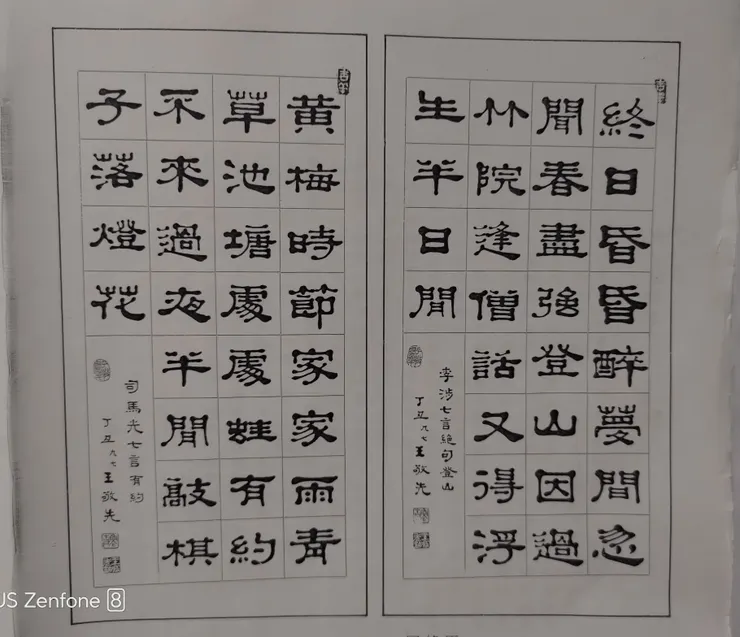 終日昏昏醉夢間忽
聞春盡強登山因過
竹院逢僧話又得浮
生半日閒
李涉七言絕句登山
丁丑九七王敬先
黃梅時節家家雨青
草池塘處處蛙有約
不來過夜半閒敲棋
子落燈花
司馬光七言有約
丁丑九七王敬先
US Zenfone 8